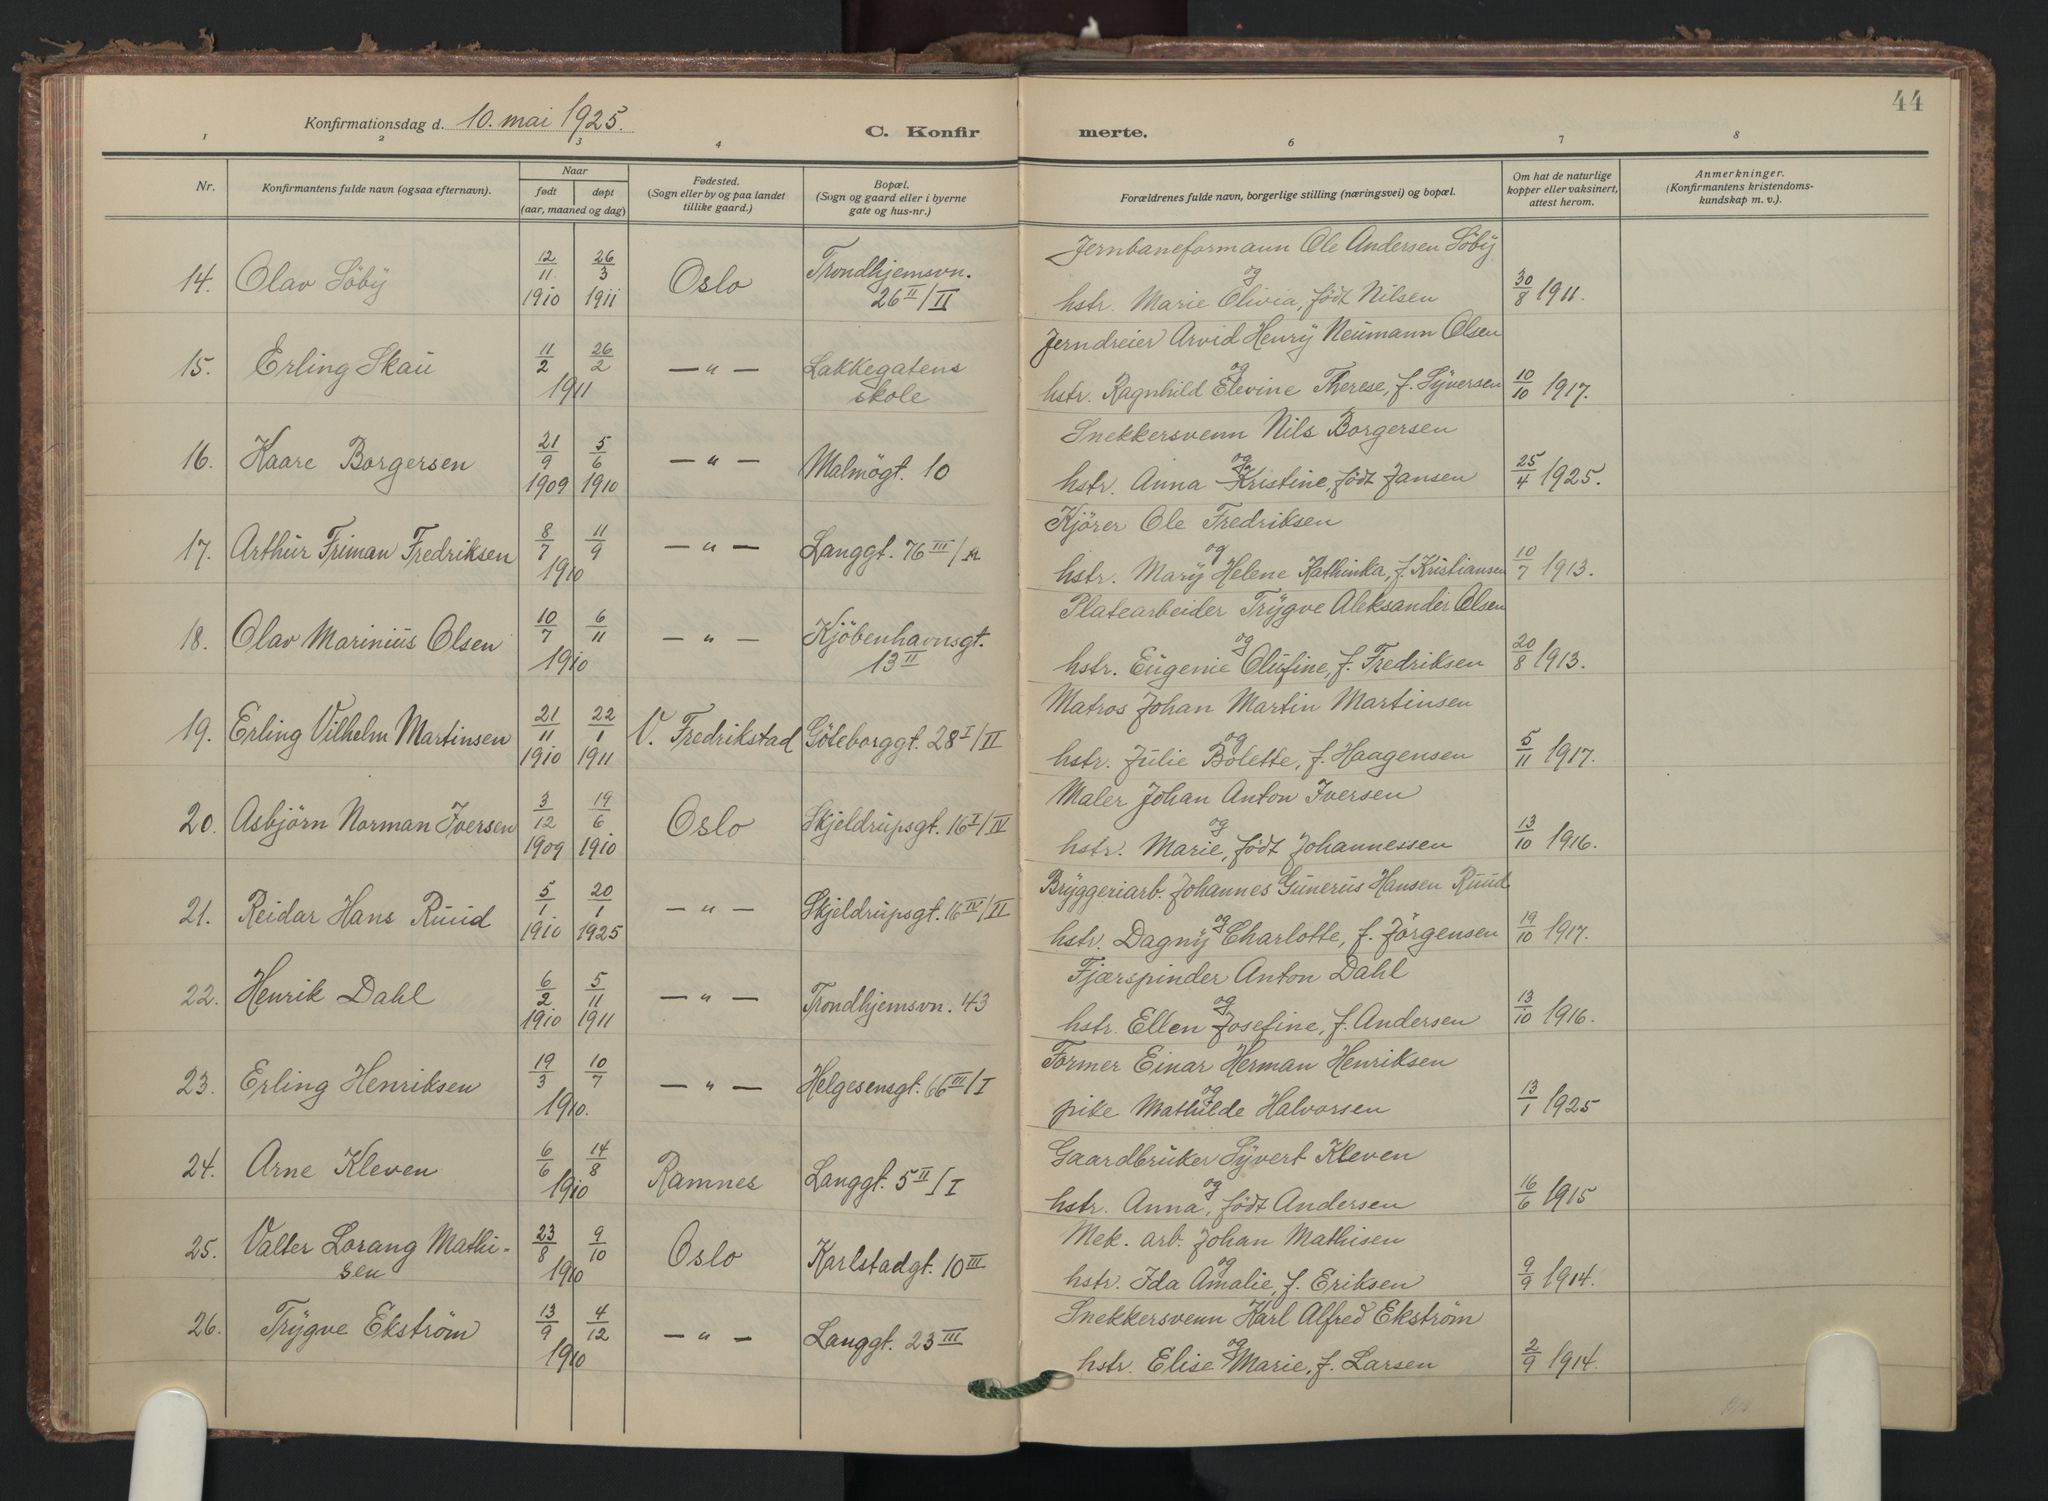 44
Konfirmationsdag d. 10. mai 1925.
C. Konfir merte.
1 2 3 4 5 6 7 8
Nr.
Konfirmantens fulde navn (ogsaa efternavn).
Naar
født døpt
(aar, maaned og dag)
Fødested.
(Sogn eller by og paa landet
tillike gaard.)
Bopæl.
(Sogn og gaard eller i byerne
gate og hus-nr.)
Forældrenes fulde navn, borgerlige stilling (næringsvei) og bopæl.
Om hat de naturlige
kopper eller vaksinert,
attest herom.
Anmerkninger.
(Konfirmantens kristendoms-
kundskap m. v.).
14. Olav Söby 12/11 1910 26/3 1911 Oslo Trondhjemsvn. 26 II/II
Jernbaneformann Ole Andersen Söby
og
hstr. Marie Olivia, född Nilsen 30/8 1911.
15. Erling Skau 11/2 26/2 1911 — " — Lakkegatens skole
Jerndreier Arvid Henry Neumann Olsen
og
hstr. Ragnhild Elevine Therese, f. Syversen 10/10 1917.
16. Kaare Borgersen 21/9 1909 5/6 1910 — " — Malmögt. 10
Snekkersvenn Nils Borgersen
og
hstr. Anna Kristine, född Jansen 25/4 1925.
17. Arthur Friman Fredriksen 8/7 11/9 1910 — " — Langgt. 76 III/
Kjörer Ole Fredriksen
og
hstr. Mary Helene Kathinka, f. Kristiansen 10/7 1913.
18. Olav Marinius Olsen 10/7 6/11 1910 — " — Kjöbenhavnsgt. 13 II
Platearbeider Trygve Aleksander Olsen
og
hstr. Eugenie Olufine, f. Fredriksen 20/8 1913.
19. Erling Vilhelm Martinsen 21/11 1910 22/1 1911 V. Fredrikstad Göteborggt. 28 I/II
Matros Johan Martin Martinsen
og
hstr. Julie Bolette, f. Haagensen 5/11 1917.
20. Asbjörn Norman Iversen 3/12 1909 19/6 1910 Oslo Skjeldrupsgt. 16 I/IV
Maler Johan Anton Iversen
og
hstr. Marie, född Johannessen 13/10 1916.
21. Reidar Hans Ruud 5/1 1910 20/1 1925 — " — Skjeldrupsgt. 16 IV/II
Bryggeriarb. Johannes Gunerus Hansen Ruud
og
hstr. Dagny Charlotte, f. Jörgensen 19/10 1917.
22. Henrik Dahl 6/2 1910 5/11 1911 — " — Trondhjemsvn. 43
Fjærspinder Anton Dahl
og
hstr. Ellen Josefine, f. Andersen 13/10 1916.
23. Erling Henriksen 19/3 10/7 1910. — " — Helgesensgt. 66 III/I
Former Einar Herman Henriksen
og
pike Mathilde Halvorsen 13/1 1925
24. Arne Kleven 6/6 14/8 1910 Ramnes Langgt. 5 II/I
Gaardbruker Syvert Kleven
og
hstr. Anna, född Andersen 16/6 1915
25. Valter Lorang Mathi-
sen 23/8 9/10 1910 Oslo Karlstadgt. 10 III
Mek. arb. Johan Mathisen
og
hstr. Ida Amalie, f. Eriksen 9/9 1914.
26. Trygve Ekström 13/9 4/12 1910 — " — Langgt. 23 III
Snekkersvenn Karl Alfred Ekström
og
hstr. Elise Marie, f. Larsen 2/9 1914.